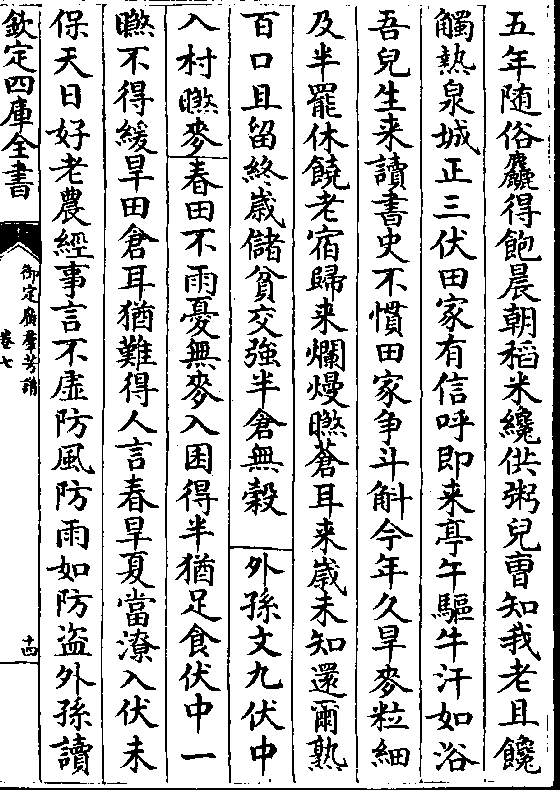 五年随俗麤得飽晨朝稻米纔供粥兒曹知我老且饞
觸熱泉城正三伏田家有信呼即来亭午驅牛汗如浴
吾兒生来讀書史不慣田家争斗斛今年久旱麥粒細
及半罷休饒老宿歸来爛熳㬠蒼耳来嵗未知還爾熟
百口且留終嵗儲貧交強半倉無穀　外孫文九伏中
入村㬠麥　春田不雨憂無麥入囷得半猶足食伏中一
㬠不得緩旱田倉耳猶難得人言春旱夏當潦入伏未
保天日好老農經事言不虛防風防雨如防盗外孫讀
欽定四庫全書
御定廣羣芳譜
卷七
十四